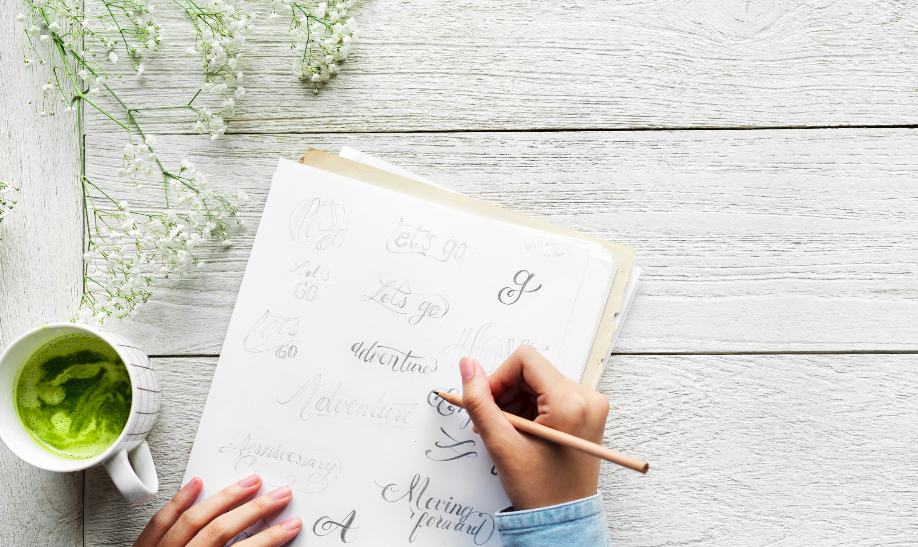 Let's
go
Let's go
g
Let's
GO
Let's go
Let's
GO
adventure
Adventure
Anniversary
A
Moving
forward